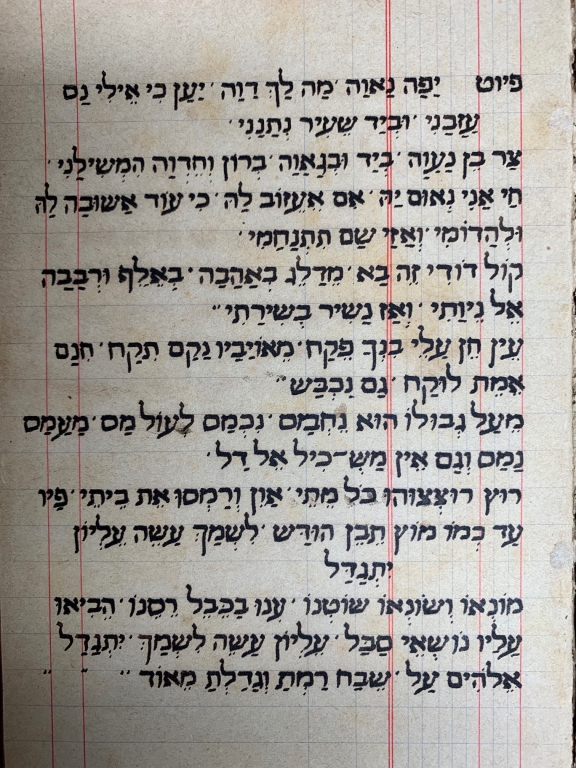 פיוט יָפָה נָאוָה ׳ מַה לַּךְ דַּוָּה ׳ יַעַן כִּי אֵילִי גַם
עֲזָבַנִי ׳ וּבְיַד שֵּׂעִיר נְתָנַנִי ׳
צַר בֶּן נַעֲוָה ׳ בְּיַד וּבְגַאֲוָה ׳ בְּרוֹן וְחֶדְוָה הִמְשִׁילַנִי ׳
חַי אֲנִי נְאוּם יַהּ ׳ אִם אֶעֱזוֹב לַהּ ׳ כִּי עוֹד אָשׁוּבָה לָהּ
וּלְהֲדוֹמִי ׳ וַאֲזַי שָׁם תִּתְנַחֲמִי ׳
קוֹל דּוֹדִי זֶה בָּא ׳ מְדַלֵּג בְּאַהֲבָה ׳ בְּאֶלֶף וּרְבָבָה
אֶל נְיוֹתִי ׳ וְאָז נָשִׁיר בְּשִׁירָתִי ״
עֵין חֵן עֲלֵי בִנְךָ פְּקַח ׳ מֵאוֹיְבָיו נָקָם תִּקַּח ׳ חִנָּם
אֱמֶת לוּקַח ׳ גַּם נִכְבַּשׁ ״
מֵעַל גְּבוּלוֹ הוּא נֶחְמָס ׳ נִכְמָס לְעוֹל מַס ׳ מַעֲמָס
נָמַס וְגַם אֵין מַשְׂ־כִּיל אֶל דָּל ׳
רוּץ רוּצְצוּהוּ כֹּל מְתֵי ׳ אָוֶן וְרָמְסוּ אֶת בֵּיתִי ׳ פָּיו
עַד כְּמוֹ מוֹץ תֶּבֶן הוּדַּשׁ ׳ לְשִׁמְךָ עֲשֵׂה עֶלְיוֹן
יִתְגַּדַּל
מוֹנְאוֹ וְשׂוֹנְאוֹ שׂוֹטְנוֹ ׳ עִנּוּ בַכֶּבֶל רִסְנוֹ ׳ הֵבִיאוּ
עָלָיו נוֹשְׂאֵי סֵבֶל ׳ עֶלְיוֹן עֲשֵׂה לְשִׁמְךָ ׳ יִתְגַּדַּל
אֱלֹהִים עַל ׳ שֶׁבַח רַמְתָּ וְגָדַלְתָּ מְאוֹד ״ ״ ״